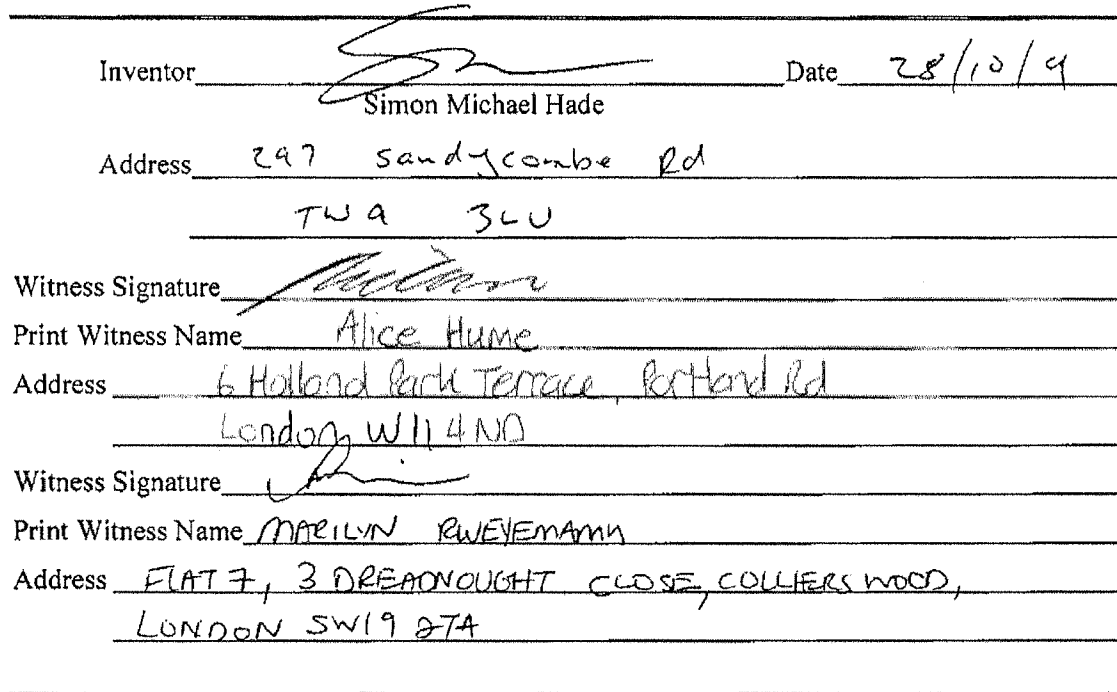 Inventor Date 28/10/9
Simon Michael Hade
Address 297 Sandycombe Rd
TW9 3LU
Witness Signature
Print Witness Name Alice Hume
Address 6 Holland Park Terrace, Portland Rd
London W11 4ND
Witness Signature
Print Witness Name MARILYN RWEYEMAMU
Address FLAT 7, 3 DREADNOUGHT CLOSE, COLLIERS WOOD,
LONDON SW19 2TA